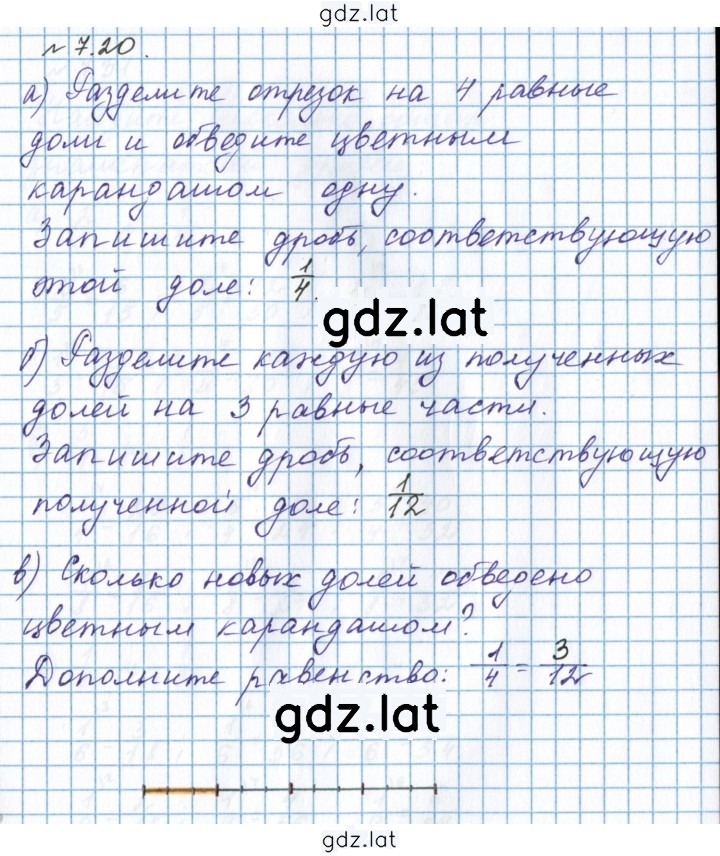 gdz.lat
№ 7.20.
а) Разделите отрезок на 4 равные
доли и обведите цветным
карандашом одну.
Запишите дробь, соответствующую
этой доле: 1/4.
gdz.lat
б) Разделите каждую из полученных
долей на 3 равные части.
Запишите дробь, соответствующую
полученной доле: 1/12
в) Сколько новых долей обведено
цветным карандашом?
Дополните равенства: 1/4 = 3/12
gdz.lat
gdz.lat